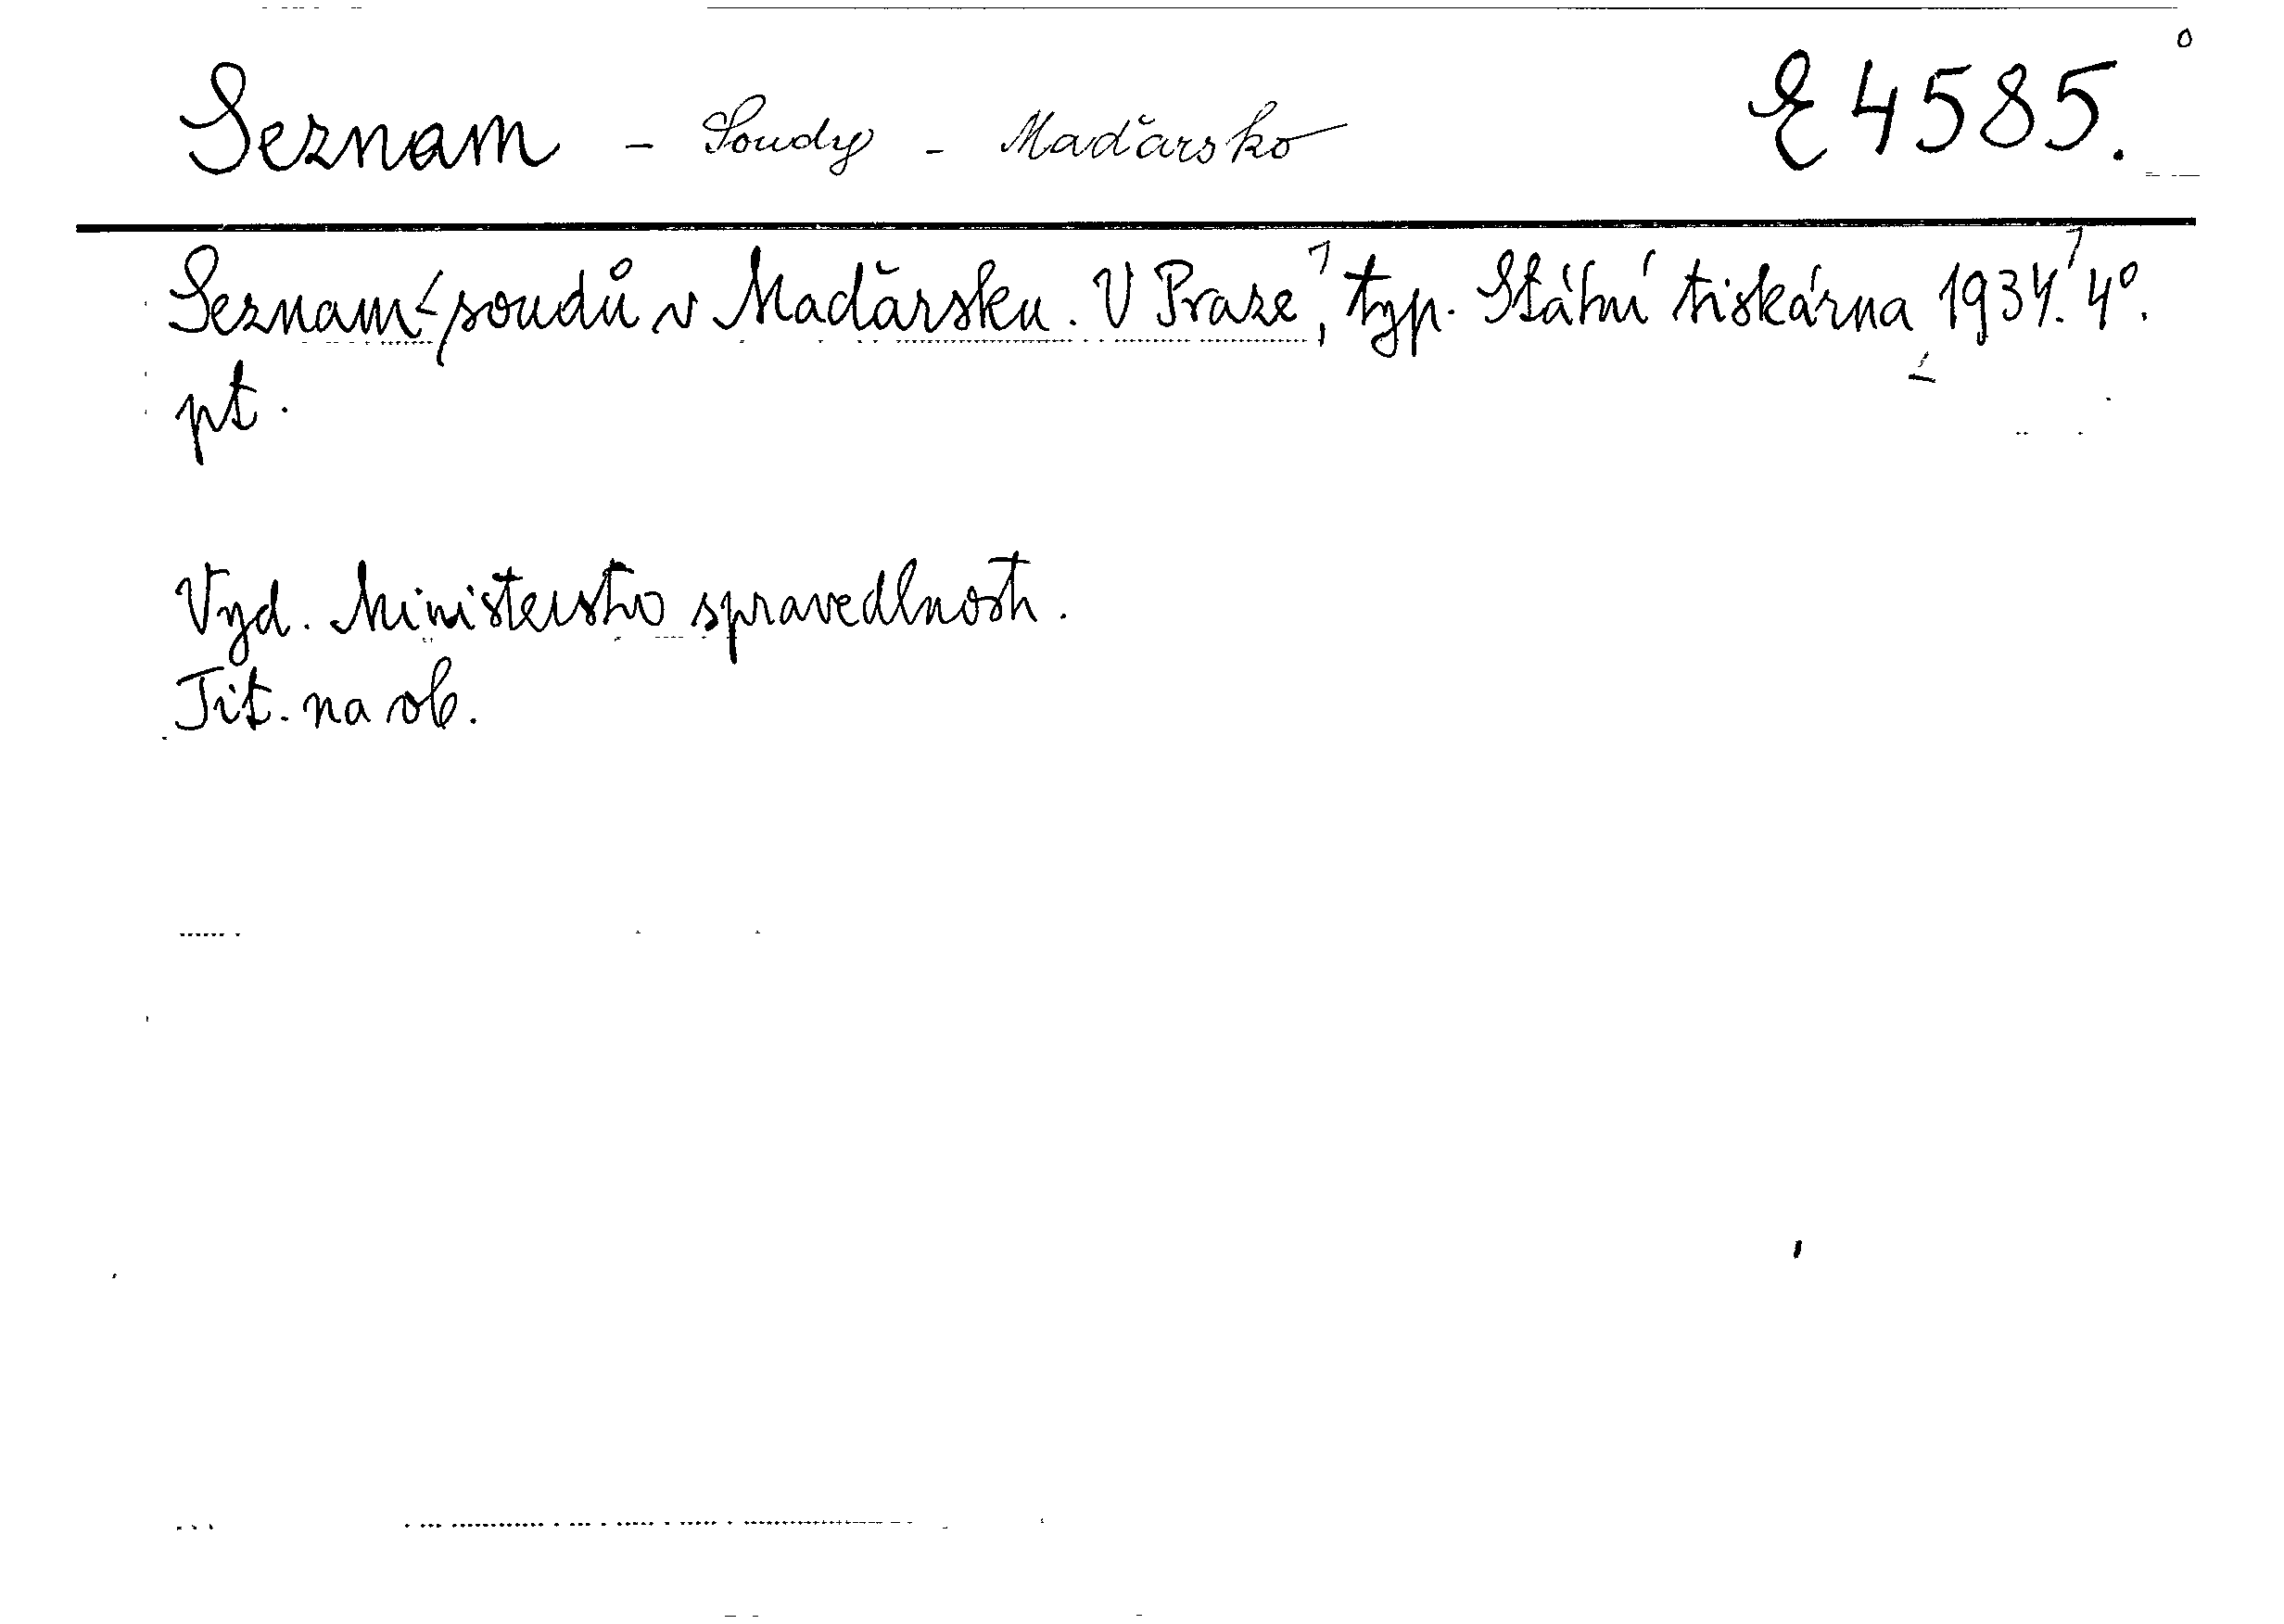 Seznam - Soudy - Maďarsko E 4585.
Seznam soudů v Maďarsku. V Praze, typ. Státní tiskárna 1934. 4°.
pt.
Vyd. Ministerstvo spravedlnosti.
Tit. na ob.